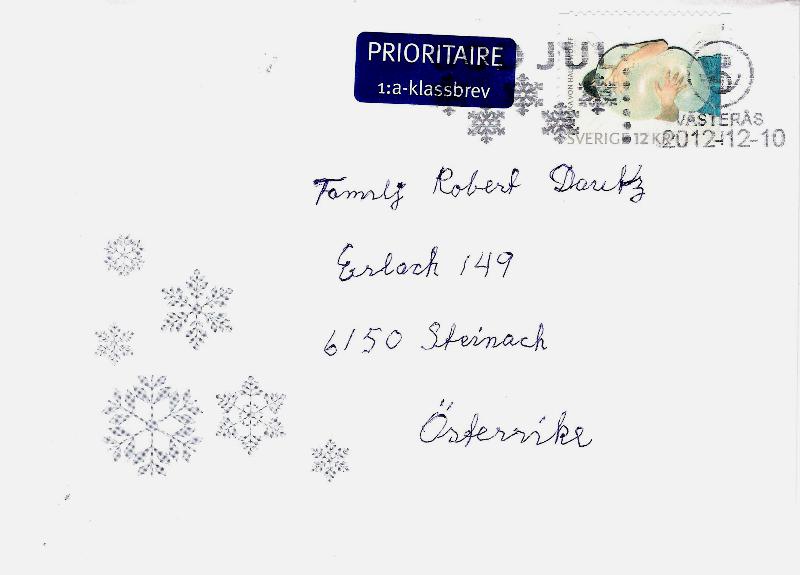 PRIORITAIRE
1:a-klassbrev
JUL
SVERIGE 12 KR
VÄSTERÅS
2012-12-10
Family Robert Daritz
Erlach 149
6150 Steinach
Österrike